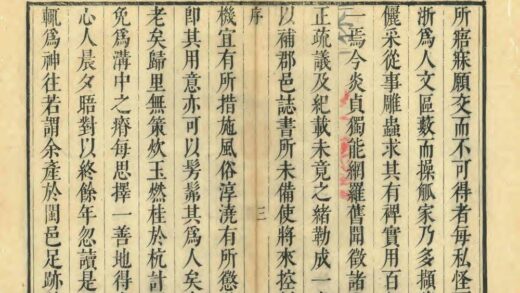 所寤寐願交而不可得者每私怪
浙為人文區藪而操觚家乃多擷
儷采從事雕蟲求其有裨實用百
一焉今炎貞獨能網羅舊聞徵諸
正疏議及紀載未竟之緒勒成一
以補郡邑誌書所未備使將來控
序 三
機宜有所措施風俗淳澆有所懲
即其用意亦可以髣髴其為人矣
老矣歸里無策炊玉燃桂於杭計
免為溝中之瘠每思擇一善地得
心人晨夕晤對以終餘年忽讀是
輒為神往若謂余產於閩邑足跡